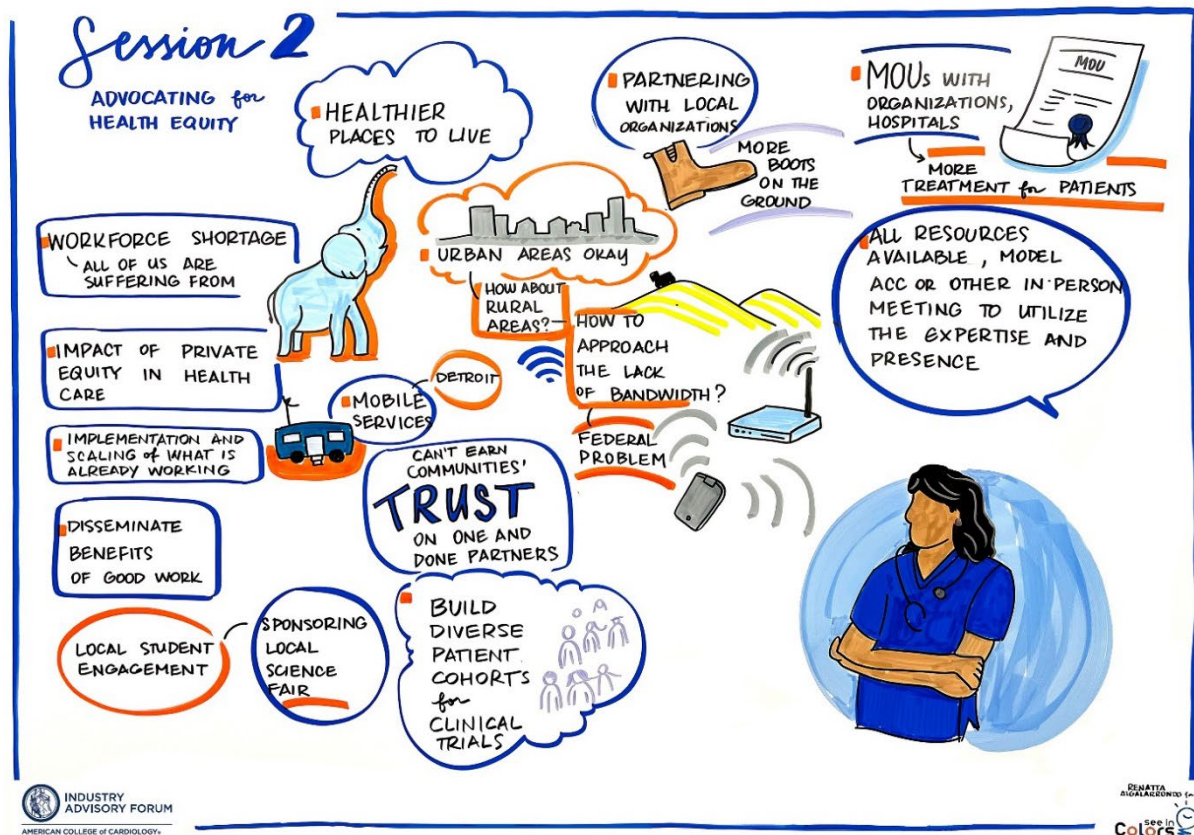 Session 2
ADVOCATING for
HEALTH EQUITY
HEALTHIER
PLACES TO LIVE
PARTNERING
WITH LOCAL
ORGANIZATIONS
MORE
BOOTS
ON THE
GROUND
MOUs WITH
ORGANIZATIONS,
HOSPITALS
MORE
TREATMENT for PATIENTS
MOU
WORKFORCE SHORTAGE
ALL OF US ARE
SUFFERING FROM
URBAN AREAS OKAY
HOW ABOUT
RURAL
AREAS?
HOW TO
APPROACH
THE LACK
OF BANDWIDTH?
FEDERAL
PROBLEM
ALL RESOURCES
AVAILABLE, MODEL
ACC OR OTHER IN-PERSON
MEETING TO UTILIZE
THE EXPERTISE AND
PRESENCE
IMPACT OF PRIVATE
EQUITY IN HEALTH
CARE
MOBILE
SERVICES
DETROIT
IMPLEMENTATION AND
SCALING of WHAT IS
ALREADY WORKING
CAN'T EARN
COMMUNITIES'
TRUST
ON ONE AND
DONE PARTNERS
DISSEMINATE
BENEFITS
OF GOOD WORK
LOCAL STUDENT
ENGAGEMENT
SPONSORING
LOCAL
SCIENCE
FAIR
BUILD
DIVERSE
PATIENT
COHORTS
for
CLINICAL
TRIALS
INDUSTRY
ADVISORY FORUM
AMERICAN COLLEGE of CARDIOLOGY®
RENATTA
ALGALARRONDO for
see in
Colors